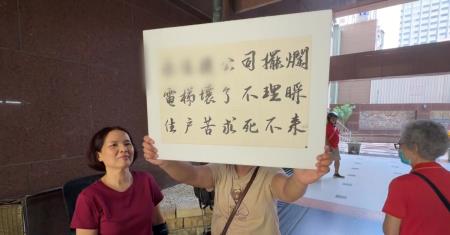 公司擺爛
電梯壞了不理睬
住戶苦求死不来